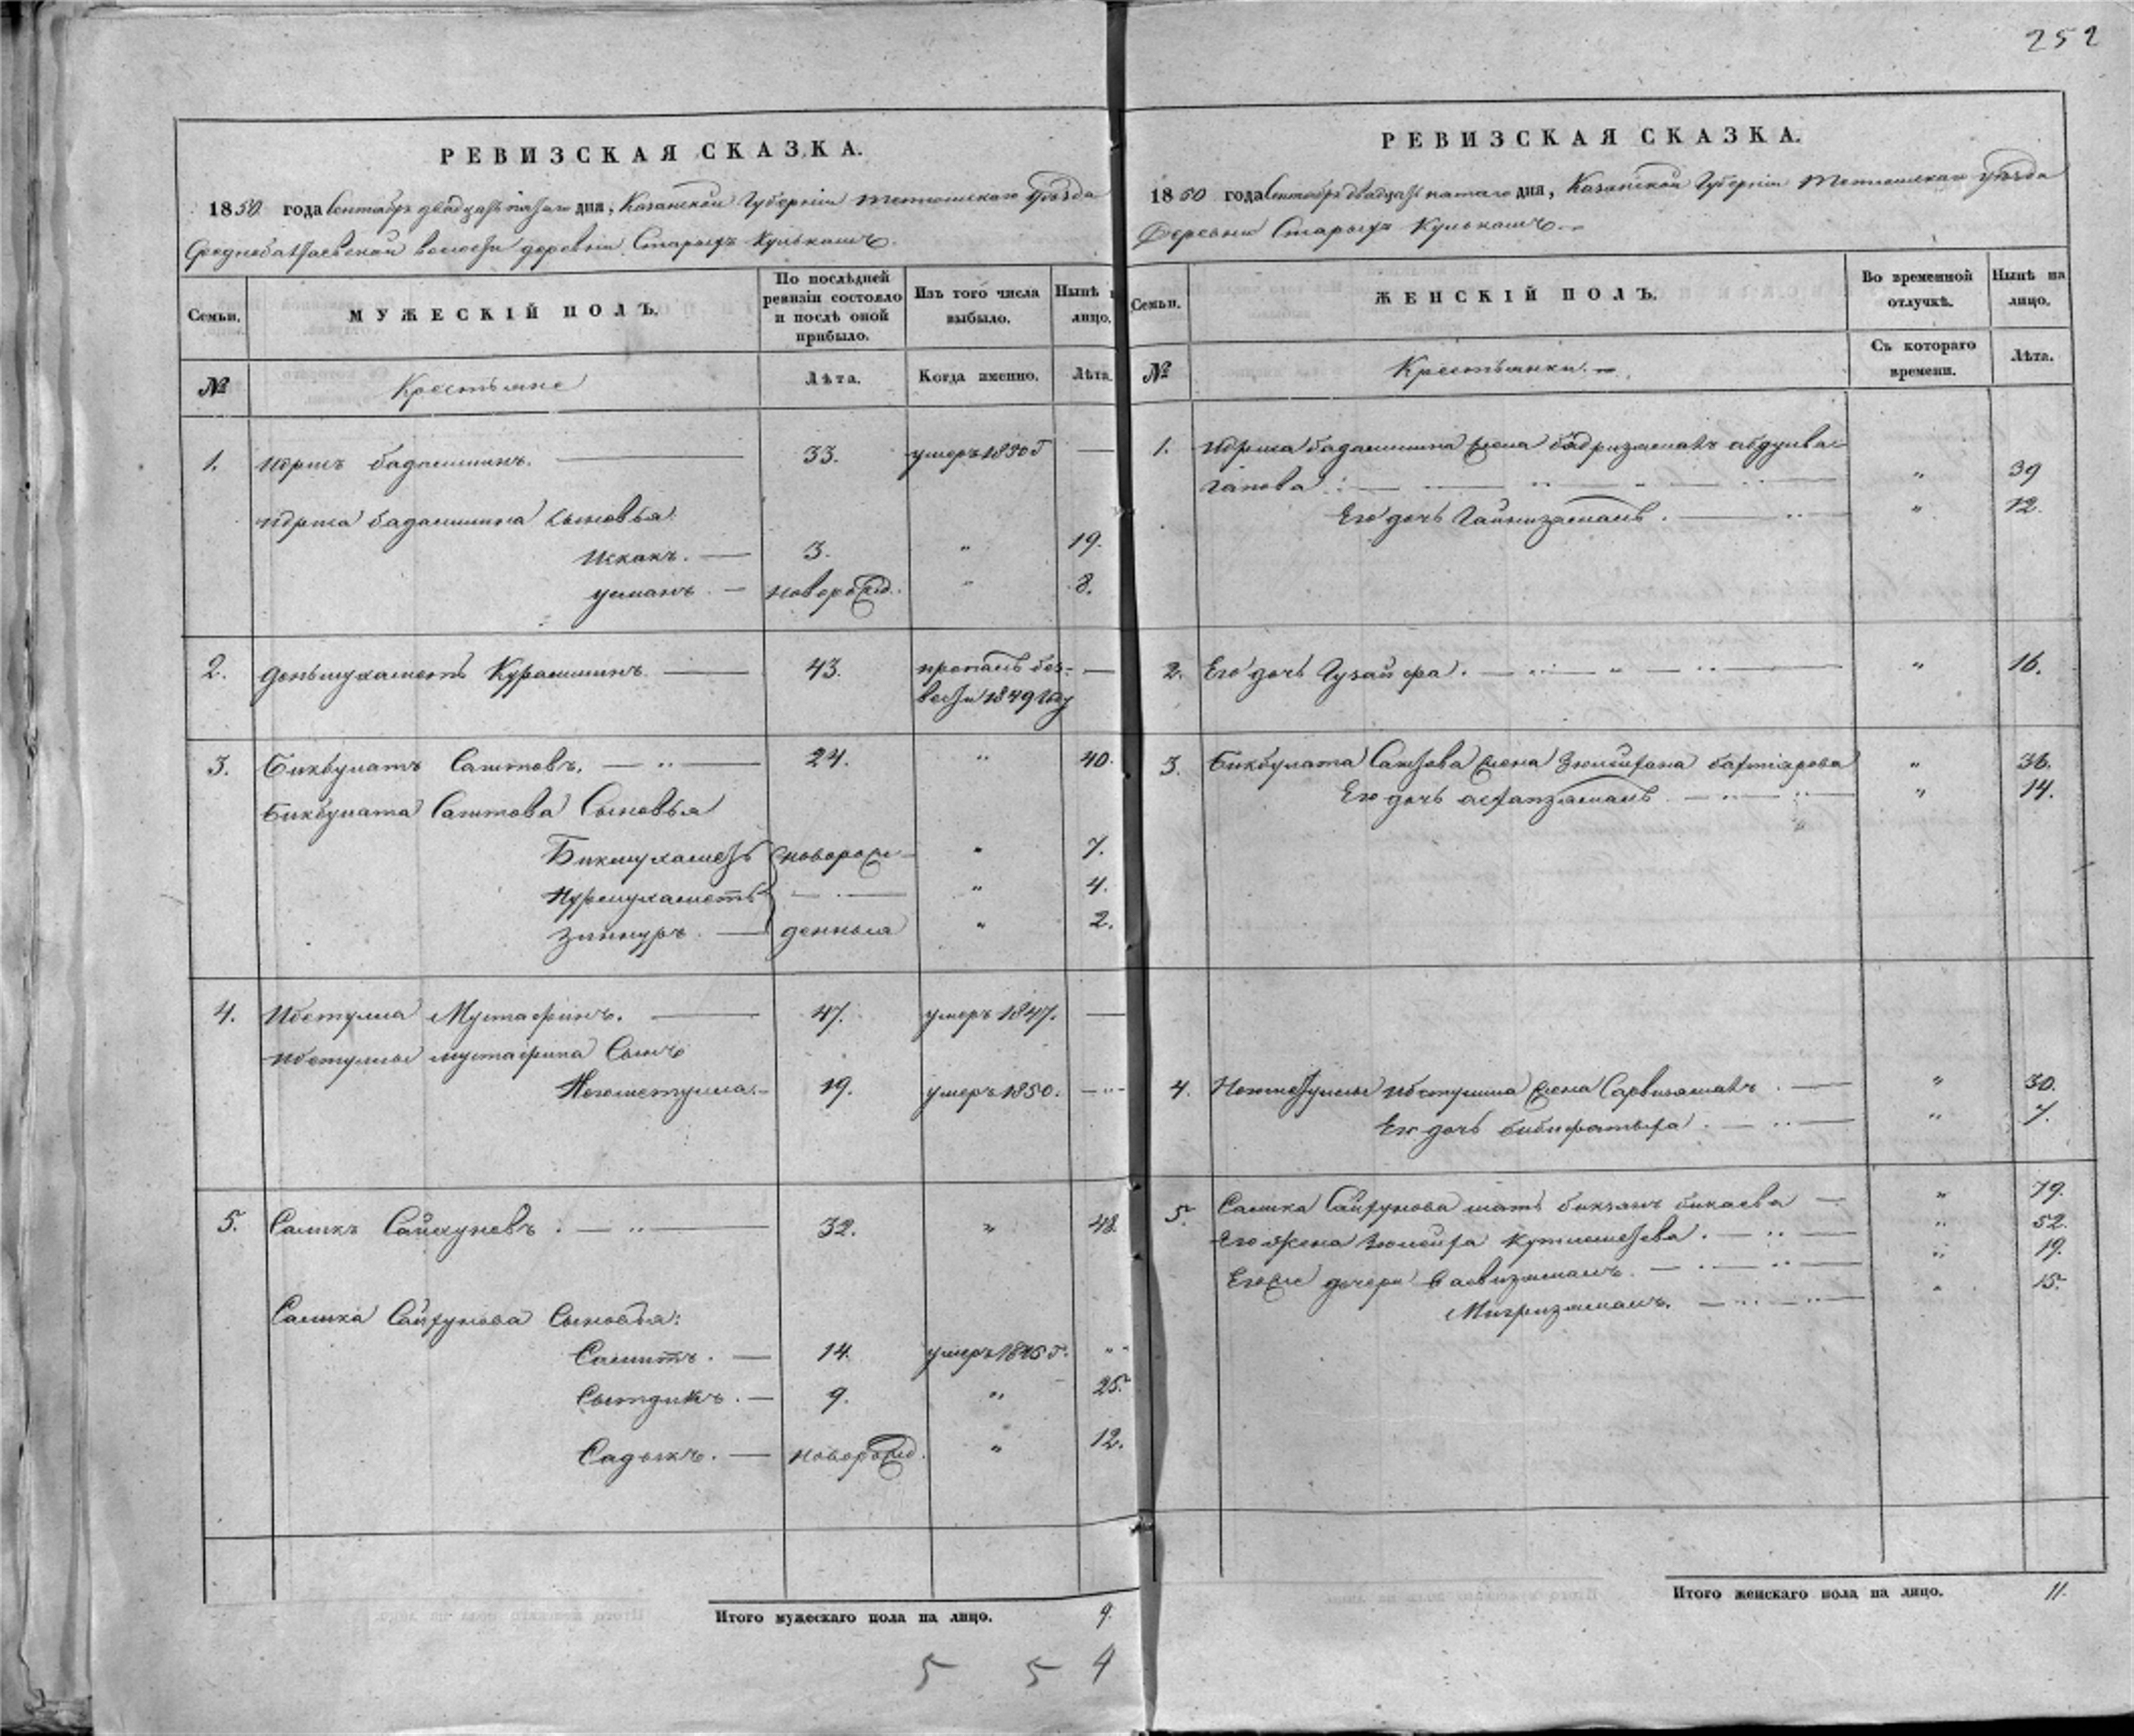 252
РЕВИЗСКАЯ СКАЗКА.
1850 года Сентября двадцать пятого дня, Казанской Губернии Тетюшскаго Уезда
Среднебалтаевской волости деревни Старыхъ Кулькашъ
Семьи.
МУЖЕСКІЙ ПОЛЪ.
По послѣдней ревизіи состояло и послѣ оной прибыло.
Изъ того числа выбыло.
Нынѣ на лицо.
№
Крестьяне
Лѣта.
Когда именно.
Лѣта.
1. Идрисъ бадамшинъ. 33. умеръ 1830 г —
Идриса бадамшина сыновья
Искакъ. 3. " 19.
усманъ новорожд. " 8.
2. деньмухаметъ Курамшинъ 43. пропалъ без-
вести 1849 году
3. Бикбулатъ Саитовъ. 24. " 40.
Бикбулата Саитова Сыновья
Бикмухаметь новорож- " 7.
Нурмухаметъ " 4.
Зиннуръ. денныя " 2.
4. Ибетулла Мустафинъ. 47. умеръ 1847. —
Ибетуллы мустафина Сынъ
Нежметулла. 19. умеръ 1850. —
5. Саликъ Сайхуновъ. 32. " 48.
Салика Сайфунова Сыновья:
Самитъ. 14. умеръ 1845 г. "
Сытдикъ. 9. " 25.
Садыкъ. новорожд. " 12.
Итого мужескаго пола на лицо. 9.
5 5 4
РЕВИЗСКАЯ СКАЗКА.
1850 года Сентября двадцать пятаго дня, Казанской Губерніи Тетюшскаго уѣзда
Деревни Старыхъ Кулькашъ
Семьи.
ЖЕНСКІЙ ПОЛЪ.
Во временной отлучкѣ.
Нынѣ на лицо.
№
Крестьянки.
Съ котораго времени.
Лѣта.
1. Идриса бадамшина жена бадризаманъ абдулва-
гапова " 39
Его дочь Гайнизаманъ. " 12.
2. Его дочь Гузайфа. " 16.
3. Бикбулата Саитова жена Зюлейхана бахтіярова " 36.
Его дочь асфанзаманъ " 14.
4. Нежметуллы Ибетулина жена Сарвизаманъ. " 30.
Его дочь бибифатыха. " 7.
5. Салика Сайфунова мать бикзянъ бикаева " 79.
Его жена Зюлейха Кутлеметева. " 52.
Его же дочери Васвизаманъ. " 19.
Мигризаманъ. " 15.
Итого женскаго пола на лицо. 11.